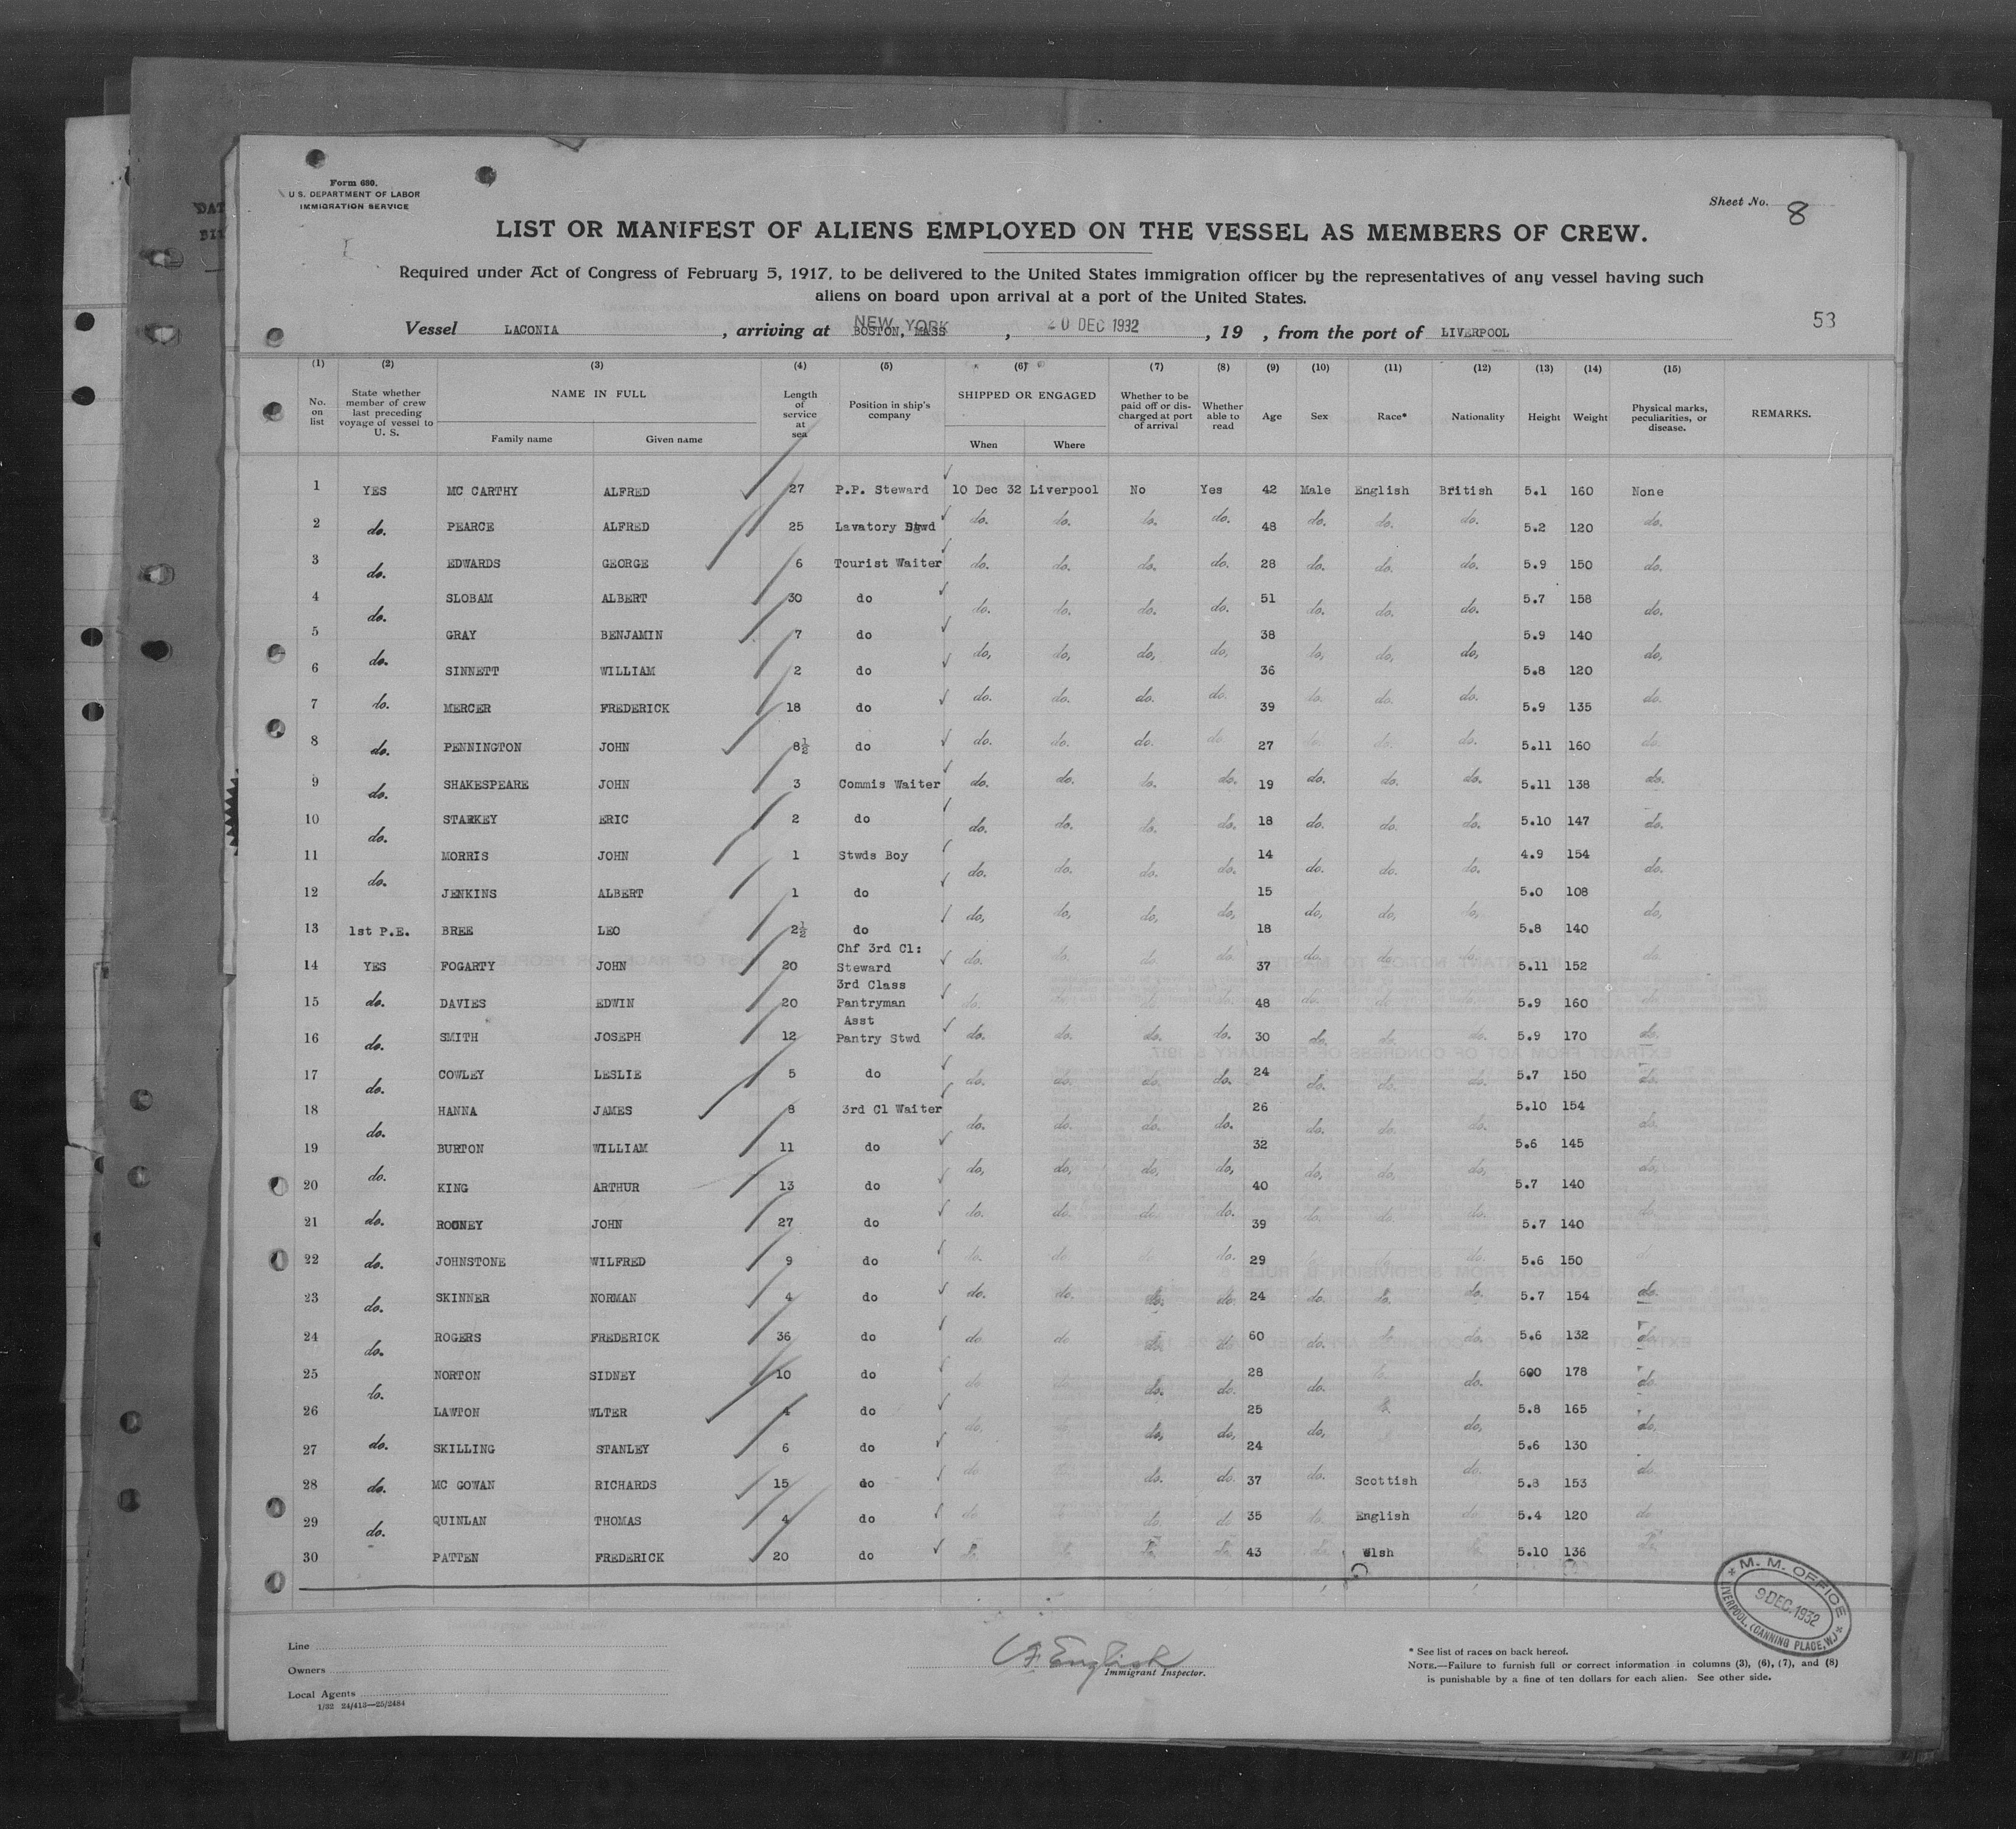 Form 680.
U. S. DEPARTMENT OF LABOR
IMMIGRATION SERVICE
Sheet No. 8
LIST OR MANIFEST OF ALIENS EMPLOYED ON THE VESSEL AS MEMBERS OF CREW.
Required under Act of Congress of February 5, 1917, to be delivered to the United States immigration officer by the representatives of any vessel having such
aliens on board upon arrival at a port of the United States.
53
Vessel LACONIA, arriving at BOSTON, MASS NEW YORK, 20 DEC 1932, 19 , from the port of LIVERPOOL
(1) (2) (3) (4) (5) (6) (7) (8) (9) (10) (11) (12) (13) (14) (15)
No. on list | State whether member of crew last preceding voyage of vessel to U. S. | NAME IN FULL | Length of service at sea | Position in ship's company | SHIPPED OR ENGAGED | Whether to be paid off or discharged at port of arrival | Whether able to read | Age | Sex | Race* | Nationality | Height | Weight | Physical marks, peculiarities, or disease. | REMARKS.
Family name | Given name | When | Where
1 YES MC CARTHY ALFRED 27 P.P. Steward 10 Dec 32 Liverpool No Yes 42 Male English British 5.1 160 None
2 do. PEARCE ALFRED 25 Lavatory Stwd do. do. do. do. 48 do. do. do. 5.2 120 do.
3 do. EDWARDS GEORGE 6 Tourist Waiter do. do. do. do. 28 do. do. do. 5.9 150 do.
4 do. SLOBAM ALBERT 30 do do. do. do. do. 51 do. do. do. 5.7 158 do.
5 do. GRAY BENJAMIN 7 do do, do, do, do, 38 do, do, do, 5.9 140 do,
6 SINNETT WILLIAM 2 do 36 5.8 120
7 do. MERCER FREDERICK 18 do do. do. do. do. 39 do. do. do. 5.9 135 do.
8 do. PENNINGTON JOHN 8½ do do. do. do. do. 27 do. do. do. 5.11 160 do.
9 do. SHAKESPEARE JOHN 3 Commis Waiter do. do. do. do. 19 do. do. do. 5.11 138 do.
10 do. STARKEY ERIC 2 do do. do. do. do. 18 do. do. do. 5.10 147 do.
11 do. MORRIS JOHN 1 Stwds Boy do. do. do. do. 14 do. do. do. 4.9 154 do.
12 JENKINS ALBERT 1 do do, do, do, do, 15 do, do, do, 5.0 108 do,
13 1st P.E. BREE LEO 2½ do 18 5.8 140
14 YES FOGARTY JOHN 20 Chf 3rd Cl: Steward do. do. do. do. 37 do. do. do. 5.11 152 do.
15 do. DAVIES EDWIN 20 3rd Class Pantryman do. do. do. do. 48 do. do. do. 5.9 160 do.
16 do. SMITH JOSEPH 12 Asst Pantry Stwd do. do. do. do. 30 do. do. do. 5.9 170 do.
17 do. COWLEY LESLIE 5 do do. do. do. do. 24 do. do. do. 5.7 150 do.
18 do. HANNA JAMES 8 3rd Cl Waiter do. do. do. do. 26 do. do. do. 5.10 154 do.
19 do. BURTON WILLIAM 11 do do, do, do, do, 32 do, do, do, 5.6 145 do,
20 KING ARTHUR 13 do 40 5.7 140
21 do. ROONEY JOHN 27 do do. do. do. do. 39 do. do. do. 5.7 140 do.
22 do. JOHNSTONE WILFRED 9 do do. do. do. 29 do. 5.6 150 do.
23 do. SKINNER NORMAN 4 do do. do. do. do. 24 do. do. do. 5.7 154 do.
24 do. ROGERS FREDERICK 36 do do. do. do. do. 60 do. do. 5.6 132 do.
25 do. NORTON SIDNEY 10 do do. do. do. 28 do. do. 600 178 do.
26 LAWTON WLTER 4 do do. do, do, 25 do, do, 5.8 165 do,
27 do. SKILLING STANLEY 6 do 24 5.6 130
28 do. MC GOWAN RICHARDS 15 do do. do. do. 37 do. Scottish do. 5.8 153 do.
29 do. QUINLAN THOMAS 4 do do. do. do. 35 do. English do. 5.4 120 do.
30 PATTEN FREDERICK 20 do 43 Wlsh 5.10 136
M. M. OFFICE
9 DEC. 1932
LIVERPOOL, (CANNING PLACE, W.)
Line
Owners
Local Agents
1/32 24/413—25/2484
English
Immigrant Inspector.
* See list of races on back hereof.
NOTE.—Failure to furnish full or correct information in columns (3), (6), (7), and (8)
is punishable by a fine of ten dollars for each alien. See other side.